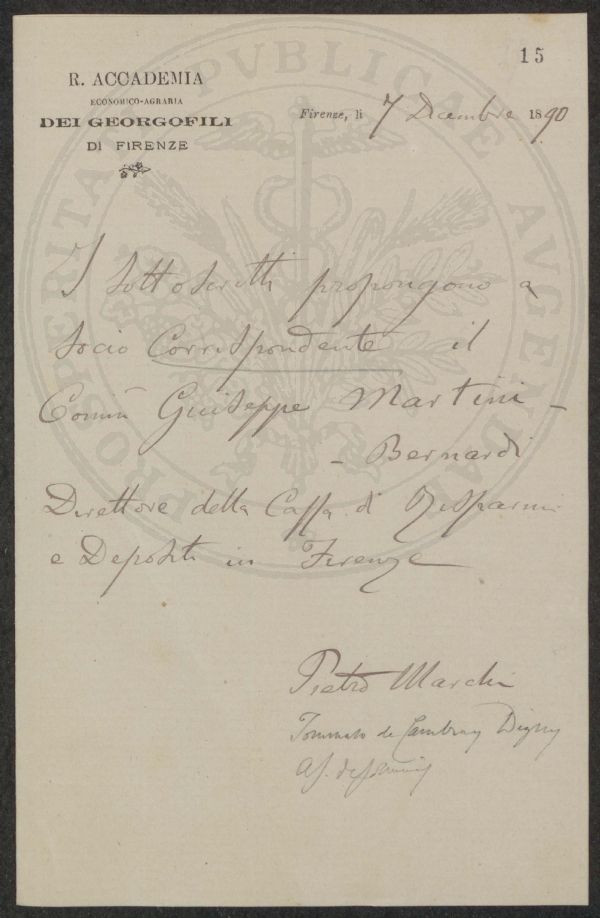 15
R. ACCADEMIA
ECONOMICO-AGRARIA
DEI GEORGOFILI
DI FIRENZE
Firenze, li 7 Dicembre 1890
PROSPERITATI PVBLICAE AVGENDAE
I sottoscritti propongono a
Socio Corrispondente il
Comm Giuseppe Martini -
- Bernardi
Direttore della Cassa di Risparmi
e Depositi in Firenze
Pietro Marchi
Tommaso de Cambray Digny